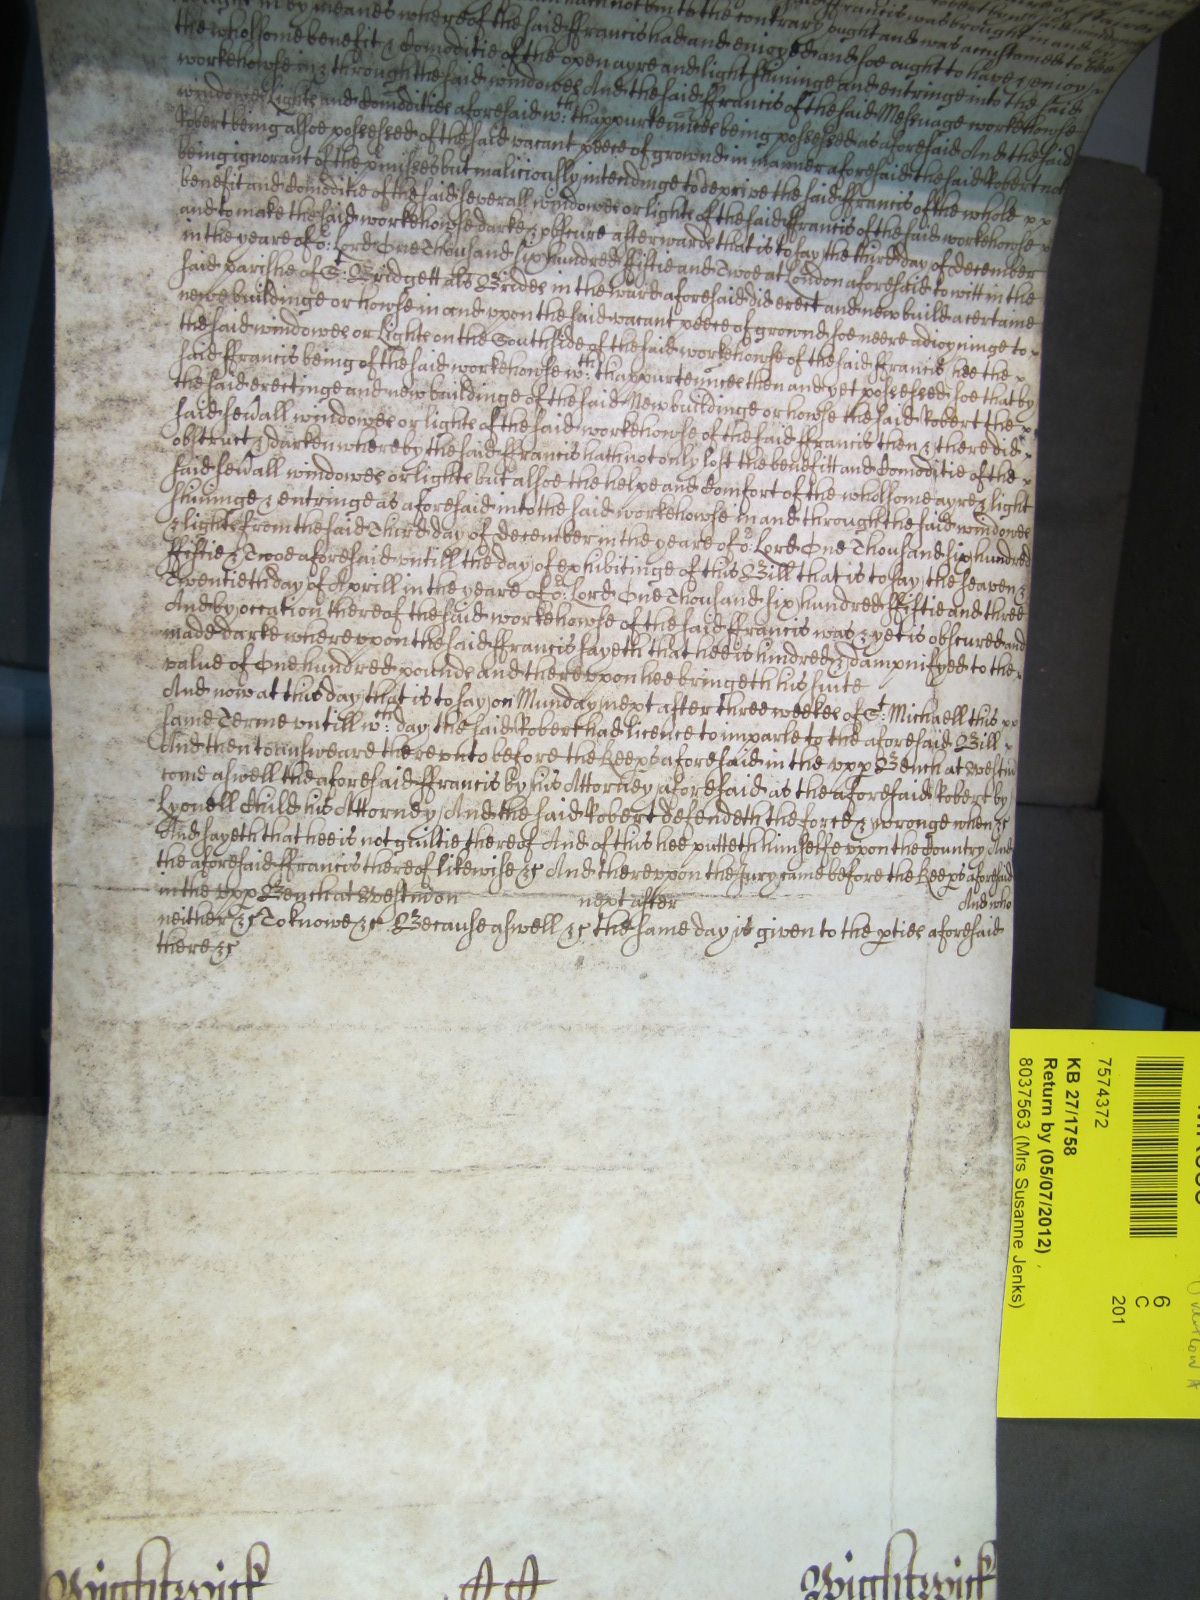 light in by meanes whereof the said ffrancis had and enioyed and soe ought to have & enioy
the wholsome benefitt & Comoditie of the open ayre and light shininge and entringe into the said
workehowse in & through the said windowes And the said ffrancis of the said Messuage workehowse
windowes lights and Comodities aforesaid wth thappurtenncs being possessed as aforesaid And the said
Robert being alsoe possessed of the said vacant peece of ground in manner aforesaid the said Robert not
being ignorant of the pmisses but maliciously intendinge to deprive the said ffrancis of the whole
benefit and Comoditie of the said severall wyndowes or lights of the said ffrancis of the said workehowse
and to make the said workehowse darke & obscure afterwards that is to say the third day of december
in the yeare of or Lord One Thousand six hundred ffiftie and Twoe at London aforesaid to witt in the
said parishe of St Bridgett als Brides in the ward aforesaid did erect and new build a certaine
newe buildinge or howse in and vpon the said vacant peece of ground soe neere adioyninge to
the said windowes or lights on the South side of the said workehowse of the said ffrancis hee the
said ffrancis being of the said workehowse wth thappurtenncs then and yet possessed soe that by
the said erectinge and new buildinge of the said New buildinge or howse the said Robert the
said sevall windowes or lights of the said workehowse of the said ffrancis then & there did
obstruct & darken whereby the said ffrancis hath not only lost the benefitt and Comoditie of the
said sevall windowes or lights but alsoe the helpe and Comfort of the wholsome ayre & light
shininge & entringe as aforesaid into the said workehowse in and through the said windowes
& lights from the said Third day of december in the yeare of or Lord One Thousand six hundred
ffiftie & Twoe aforesaid vntill the day of exhibitinge of this Bill that is to say the seaven &
Twentieth day of Aprill in the yeare of or Lord One Thousand six hundred ffiftie and three
And by occation thereof the said workehowse of the said ffrancis was & yet is obscured and
made darke wherevpon the said ffrancis sayeth that hee is hindred & dampnifyed to the
value of One hundred pounds and therevpon hee bringeth his suite
And now at this day that is to say on Munday next after three weekes of St Michaell this
same Terme vntill wch day the said Robert had licence to imparle to the aforesaid Bill
And then to answeare therevnto before the Keeps aforesaid in the vpp Bench at Westm
come aswell the aforesaid ffrancis by his Attorney aforesaid as the aforesaid Robert by
Lyonell his Attorney And the said Robert defendeth the force & wronge when &c
And sayeth that hee is not guiltie thereof And of this hee putteth himselfe vpon the Country And
the aforesaid ffrancis thereof likewise &c And therevpon the Jury came before the Keeps aforesaid
in the vpp Bench at Westmon next after And who
neither &c To knowe &c Because aswell &c the same day is given to the pties aforesaid
there &c
Wightwick Wightwick
7574372
KB 27/1758
Return by (05/07/2012)
8037563 (Mrs Susanne Jenks)
6
C
201